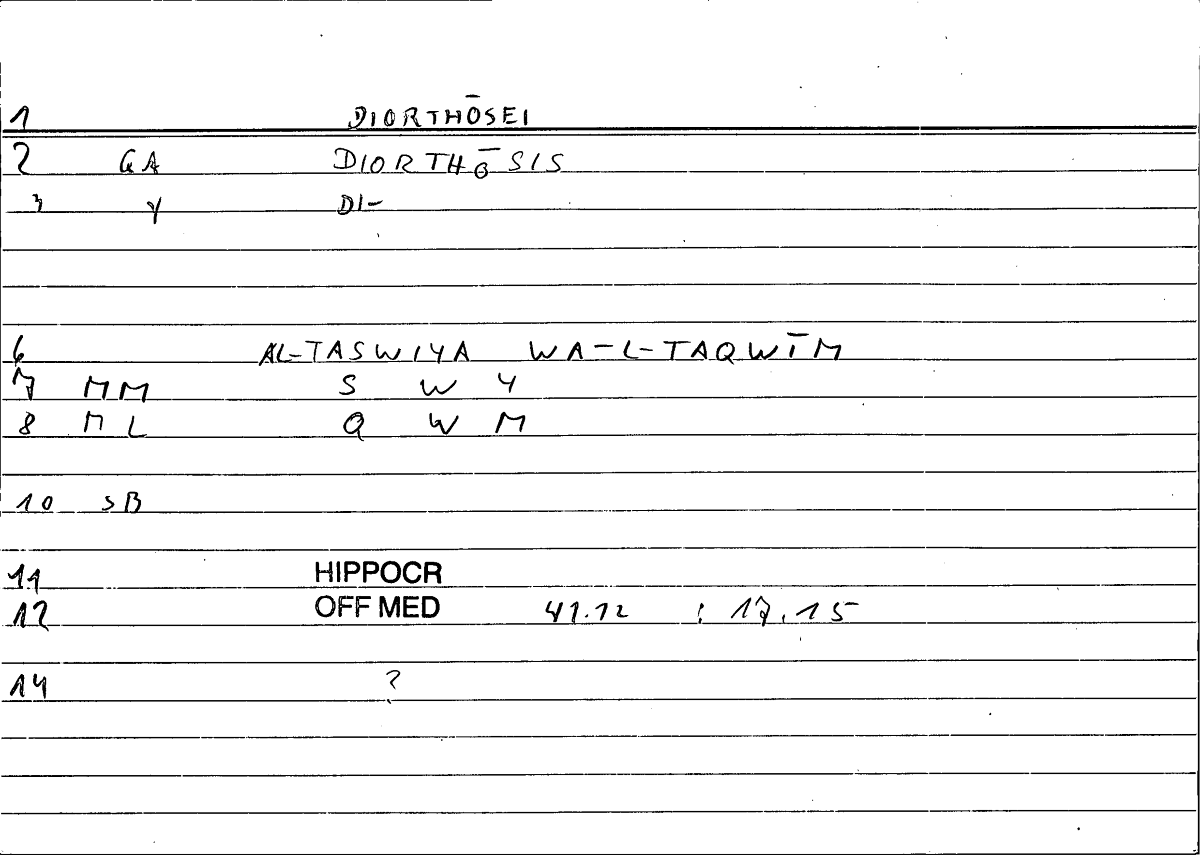 1 DIORTHŌSEI
2 GA DIORTHŌSIS
3 Y DI-
6 AL-TASWIYA WA-L-TAQWĪM
7 MM S W Y
8 ML Q W M
10 SB
11 HIPPOCR
12 OFF MED 41.12 : 17.15
14 ?